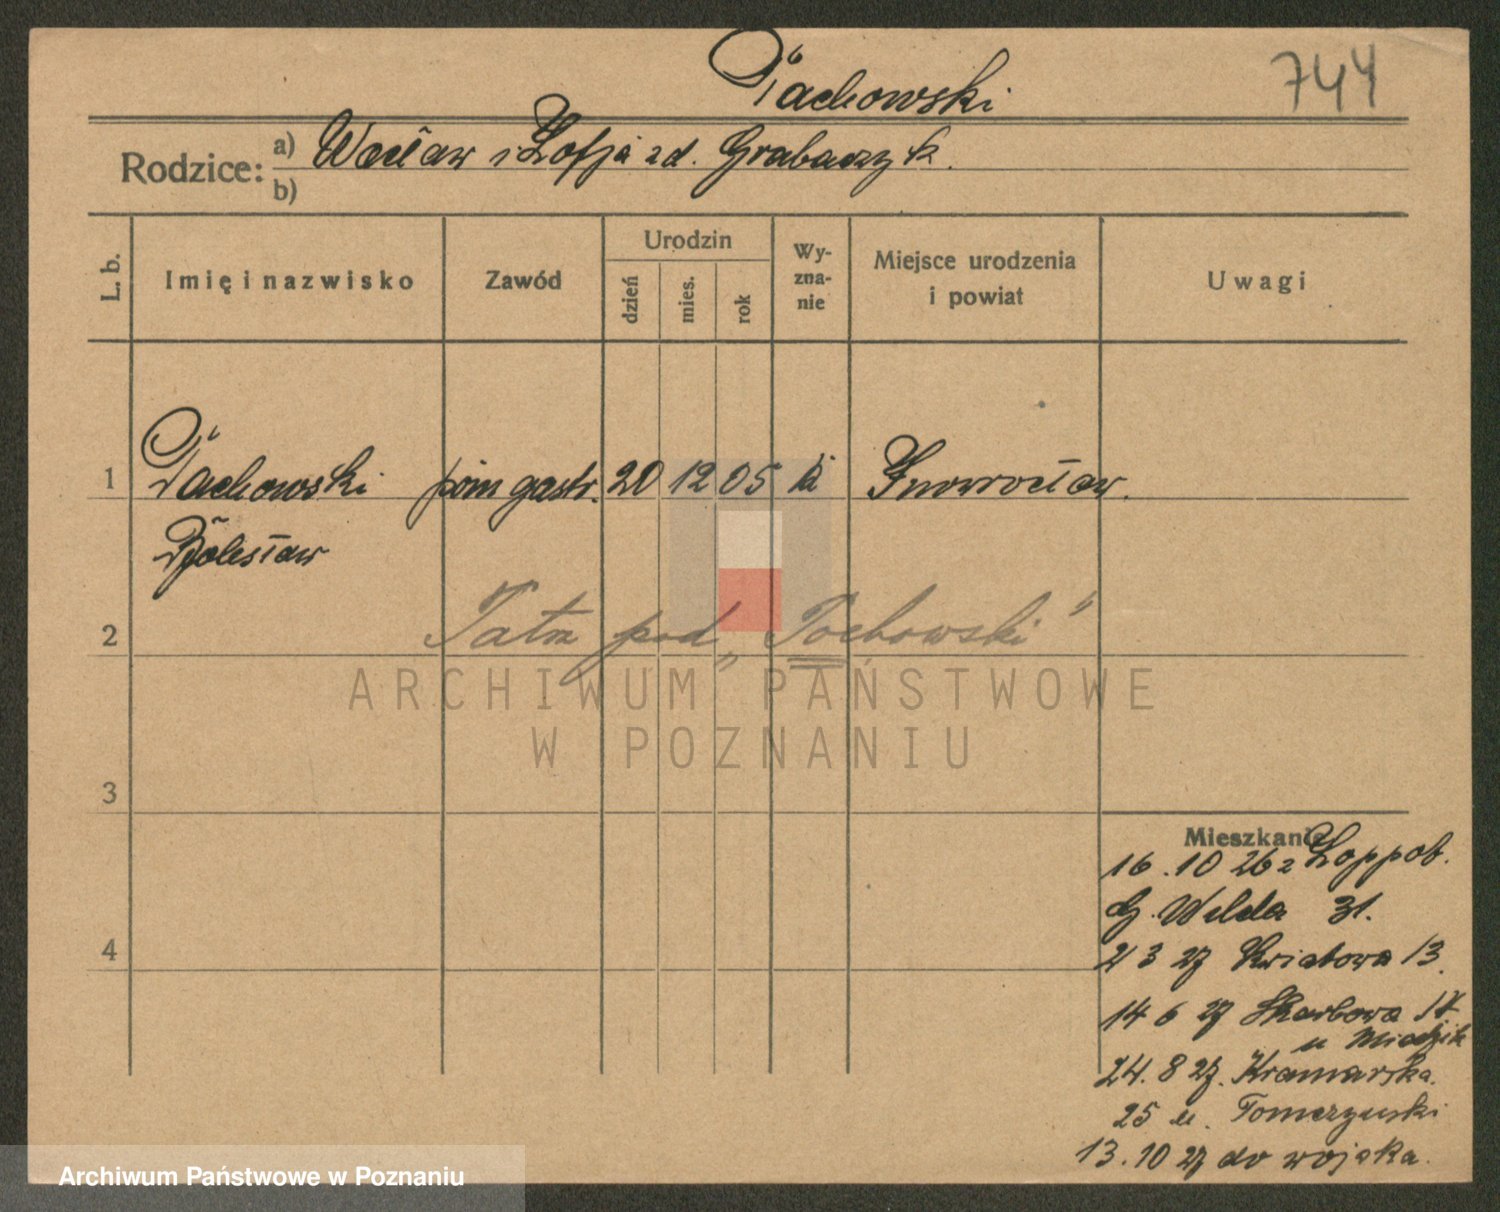 Pachowski
744
Rodzice: a) Wacław i Zofja zd. Grabaszyk.
b)
L. b.
Imię i nazwisko
Zawód
Urodzin
dzień
mies.
rok
Wy-
zna-
nie
Miejsce urodzenia
i powiat
Uwagi
1 Pachowski pom gastr. 20 12 05 k Inowrocław.
Bolesław
2
Patrz pod „Pochowski"
3
4
Mieszkanie
16.10 26 z Zoppot.
G. Wilda 31.
2 3 27 Kwiatowa 13.
14 6 27 Skarbowa
u
24. 8 27. Kramarska.
25 u.
13.10 27 do wojska.
ARCHIWUM PAŃSTWOWE
W POZNANIU
Archiwum Państwowe w Poznaniu